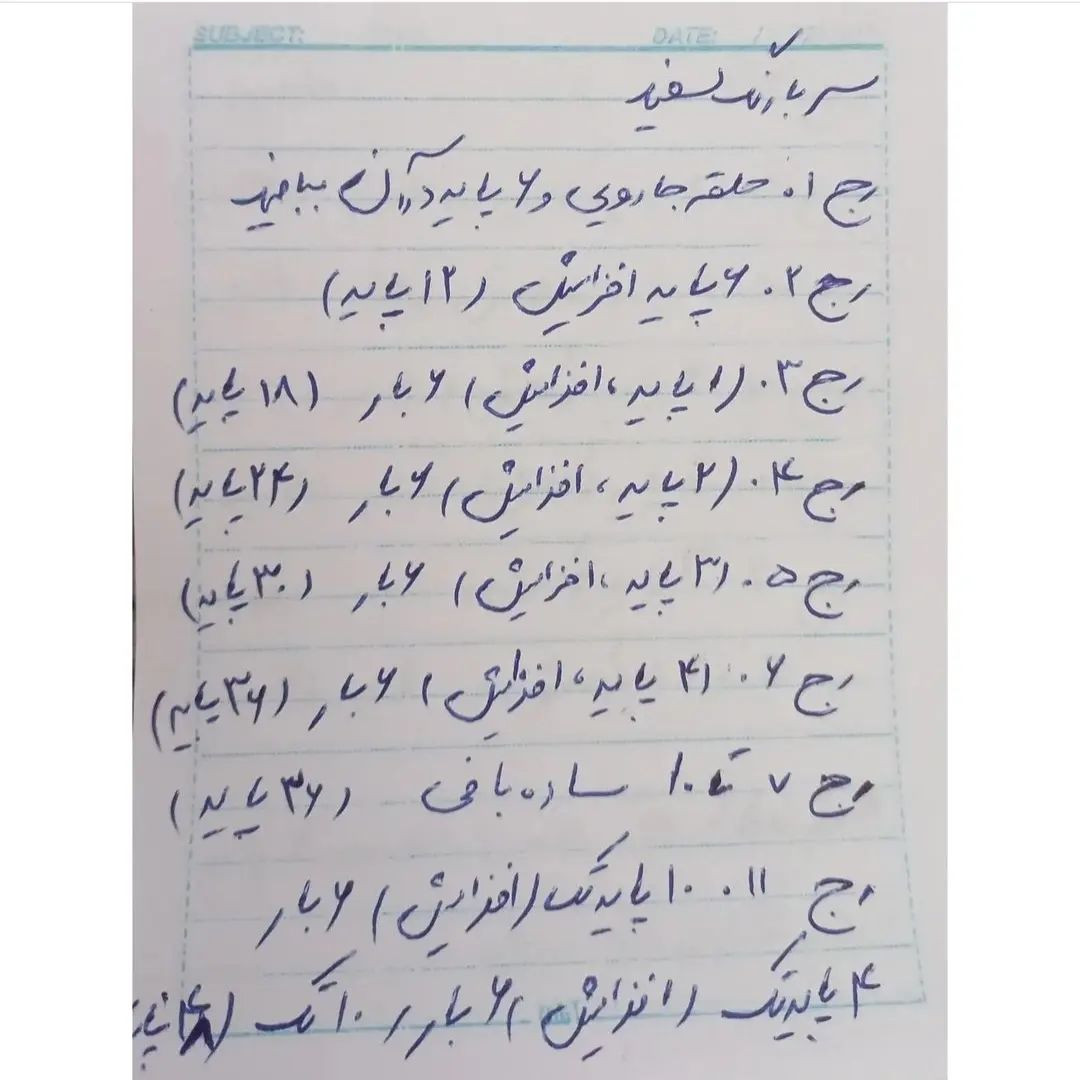 SUBJECT: DATE: /
سر با رنگ سفید
رج ۱. حلقه جادویی و ۶ پایه در آن ببافید
رج ۲. ۶ پایه افزایش (۱۲ پایه)
رج ۳. (۱ پایه، افزایش) ۶ بار (۱۸ پایه)
رج ۴. (۲ پایه، افزایش) ۶ بار (۲۴ پایه)
رج ۵. (۳ پایه، افزایش) ۶ بار (۳۰ پایه)
رج ۶. (۴ پایه، افزایش) ۶ بار (۳۶ پایه)
رج ۷ تا ۱۰ ساده بافی (۳۶ پایه)
رج ۱۱. ۱۰ پایه تک (افزایش) ۶ بار
۴ پایه تک (افزایش) ۶ بار ۱۰ تک (۴۸